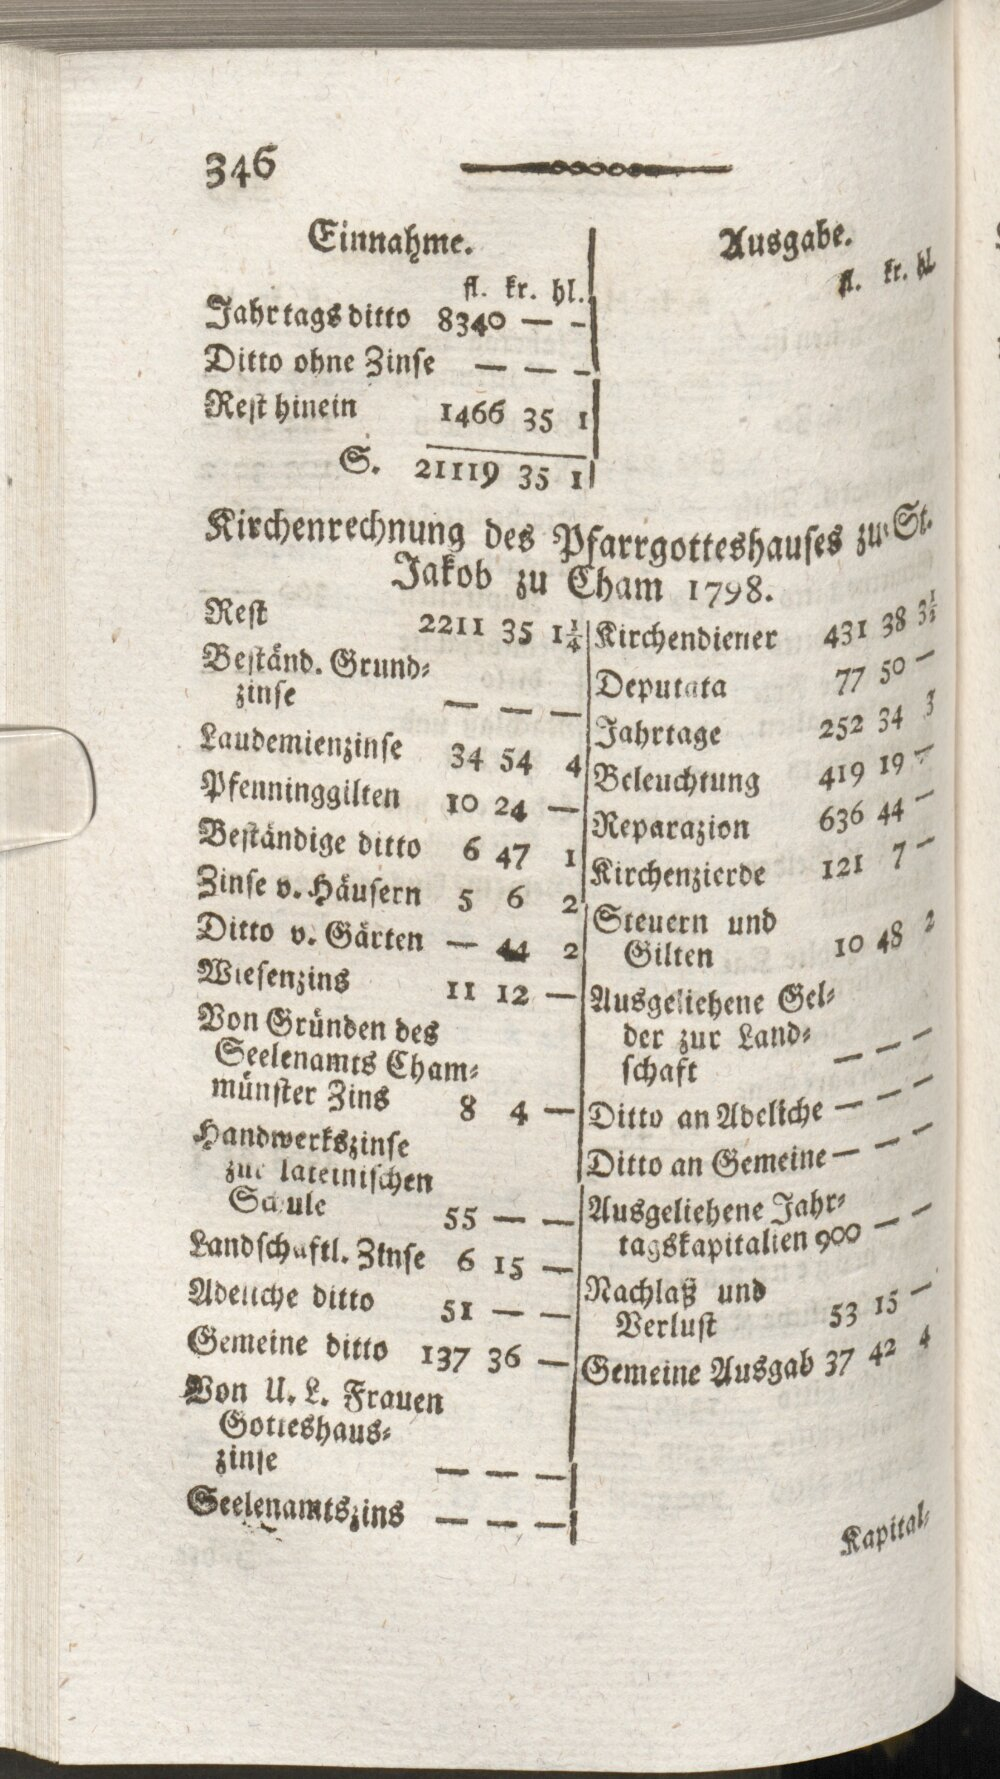 346
Einnahme.
fl. kr. hl.
Jahrtagsditto 8340 — —
Ditto ohne Zinse — — —
Rest hinein 1466 35 1
S. 21119 35 1
Ausgabe.
fl. kr. hl.
Kirchenrechnung des Pfarrgotteshauses zu St.
Jakob zu Cham 1798.
Rest 2211 35 1¼
Beständ. Grund⸗
zinse — — —
Laudemienzinse 34 54 4
Pfenninggilten 10 24 —
Beständige ditto 6 47 1
Zinse v. Häusern 5 6 2
Ditto v. Gärten — 44 2
Wiesenzins 11 12 —
Von Gründen des
Seelenamts Cham⸗
münster Zins 8 4 —
Handwerkszinse
zur lateinischen
Schule 55 — —
Landschaftl. Zinse 6 15 —
Adeliche ditto 51 — —
Gemeine ditto 137 36 —
Von U. L. Frauen
Gotteshaus⸗
zinse — — —
Seelenamtszins — — —
Kirchendiener 431 38 3½
Deputata 77 50 —
Jahrtage 252 34 3
Beleuchtung 419 19 —
Reparazion 636 44 —
Kirchenzierde 121 7 —
Steuern und
Gilten 10 48 2
Ausgeliehene Gel⸗
der zur Land⸗
schaft — — —
Ditto an Adeliche — — —
Ditto an Gemeine — — —
Ausgeliehene Jahr⸗
tagskapitalien 900 — —
Nachlaß und
Verlust 53 15 —
Gemeine Ausgab 37 42 4
Kapital⸗